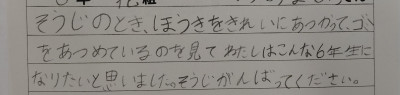 そうじのとき、ほうきをきれいにあつかって、ゴミ
をあつめているのを見てわたしはこんな6年生に
なりたいと思いました。そうじがんばってください。